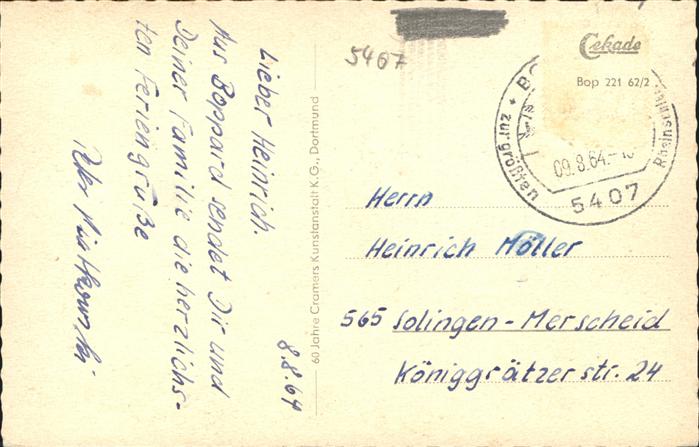 8.8.64
Lieber Heinrich.
Aus Boppard sendet Dir und
Deiner Familie die herzlichs-
ten Feriengrüße
60 Jahre Cramers Kunstanstalt K.G., Dortmund
5407
Cekade
Bop 221 62/2
zur größten Rheinschleife
09.8.64
5407
Herrn
Heinrich Möller
565 Solingen-Merscheid
Königgrätzer str. 24